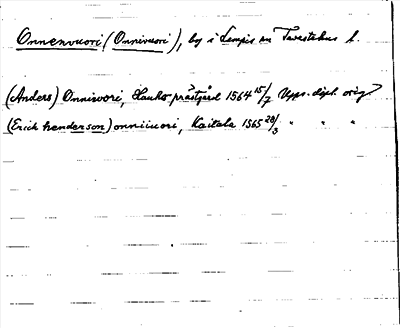 Onnenvuori (Onnivuori), by i Lempis sn Tavastehus l.
(Anders) Onnivori, Hauho prästgård 1564 15/7 Upps. dipl. orig
(Erich henderson) onniiuori, Kaitala 1565 28/3 " " "